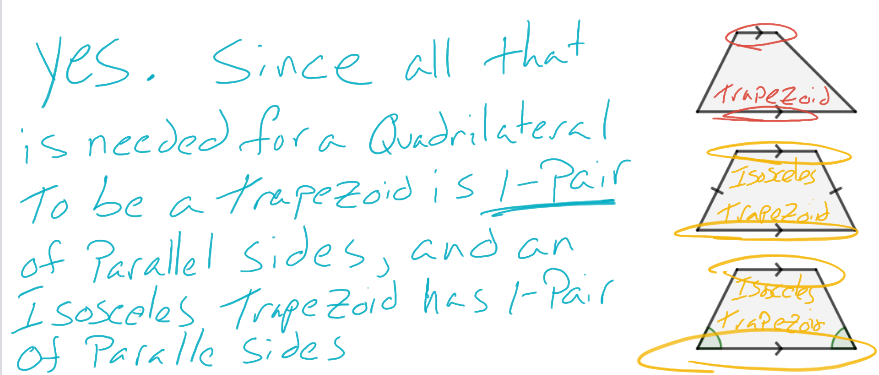 Yes. Since all that
is needed for a Quadrilateral
To be a Trapezoid is 1-Pair
of Parallel sides, and an
Isosceles Trapezoid has 1-Pair
of Paralle sides
Trapezoid
Isosceles
Trapezoid
Isosceles
Trapezoid